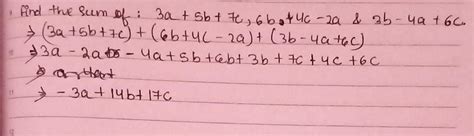 Find the Sum of : 3a + 5b + 7c, 6b + 4c - 2a & 3b - 4a + 6c.
⇒ (3a + 5b + 7c) + (6b + 4c - 2a) + (3b - 4a + 6c)
⇒ 3a - 2a - 4a + 5b + 6b + 3b + 7c + 4c + 6c
⇒ - 3a + 14b + 17c